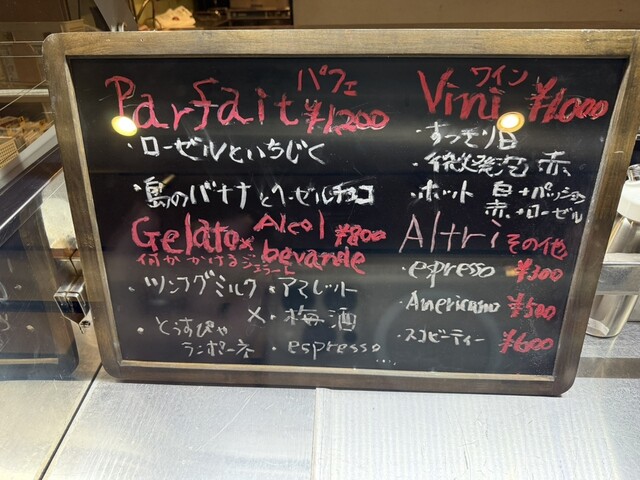 Parfait パフェ ¥1200
・ローゼルといちじく
島のバナナとヘーゼルチョコ
Gelato × Alcol bevande ¥800
何かかけるジェラート
・ツンフグミルク ・アマレット
× ・梅酒
・とうすぴゃ ランポーネ ・espresso ....
Vini ワイン ¥1000
・すっきり白
・微発泡 赤
・ホット 白+パッション
赤+ローゼル
Altri その他
・espresso ¥300
・Americano ¥500
・スコビーティー ¥600